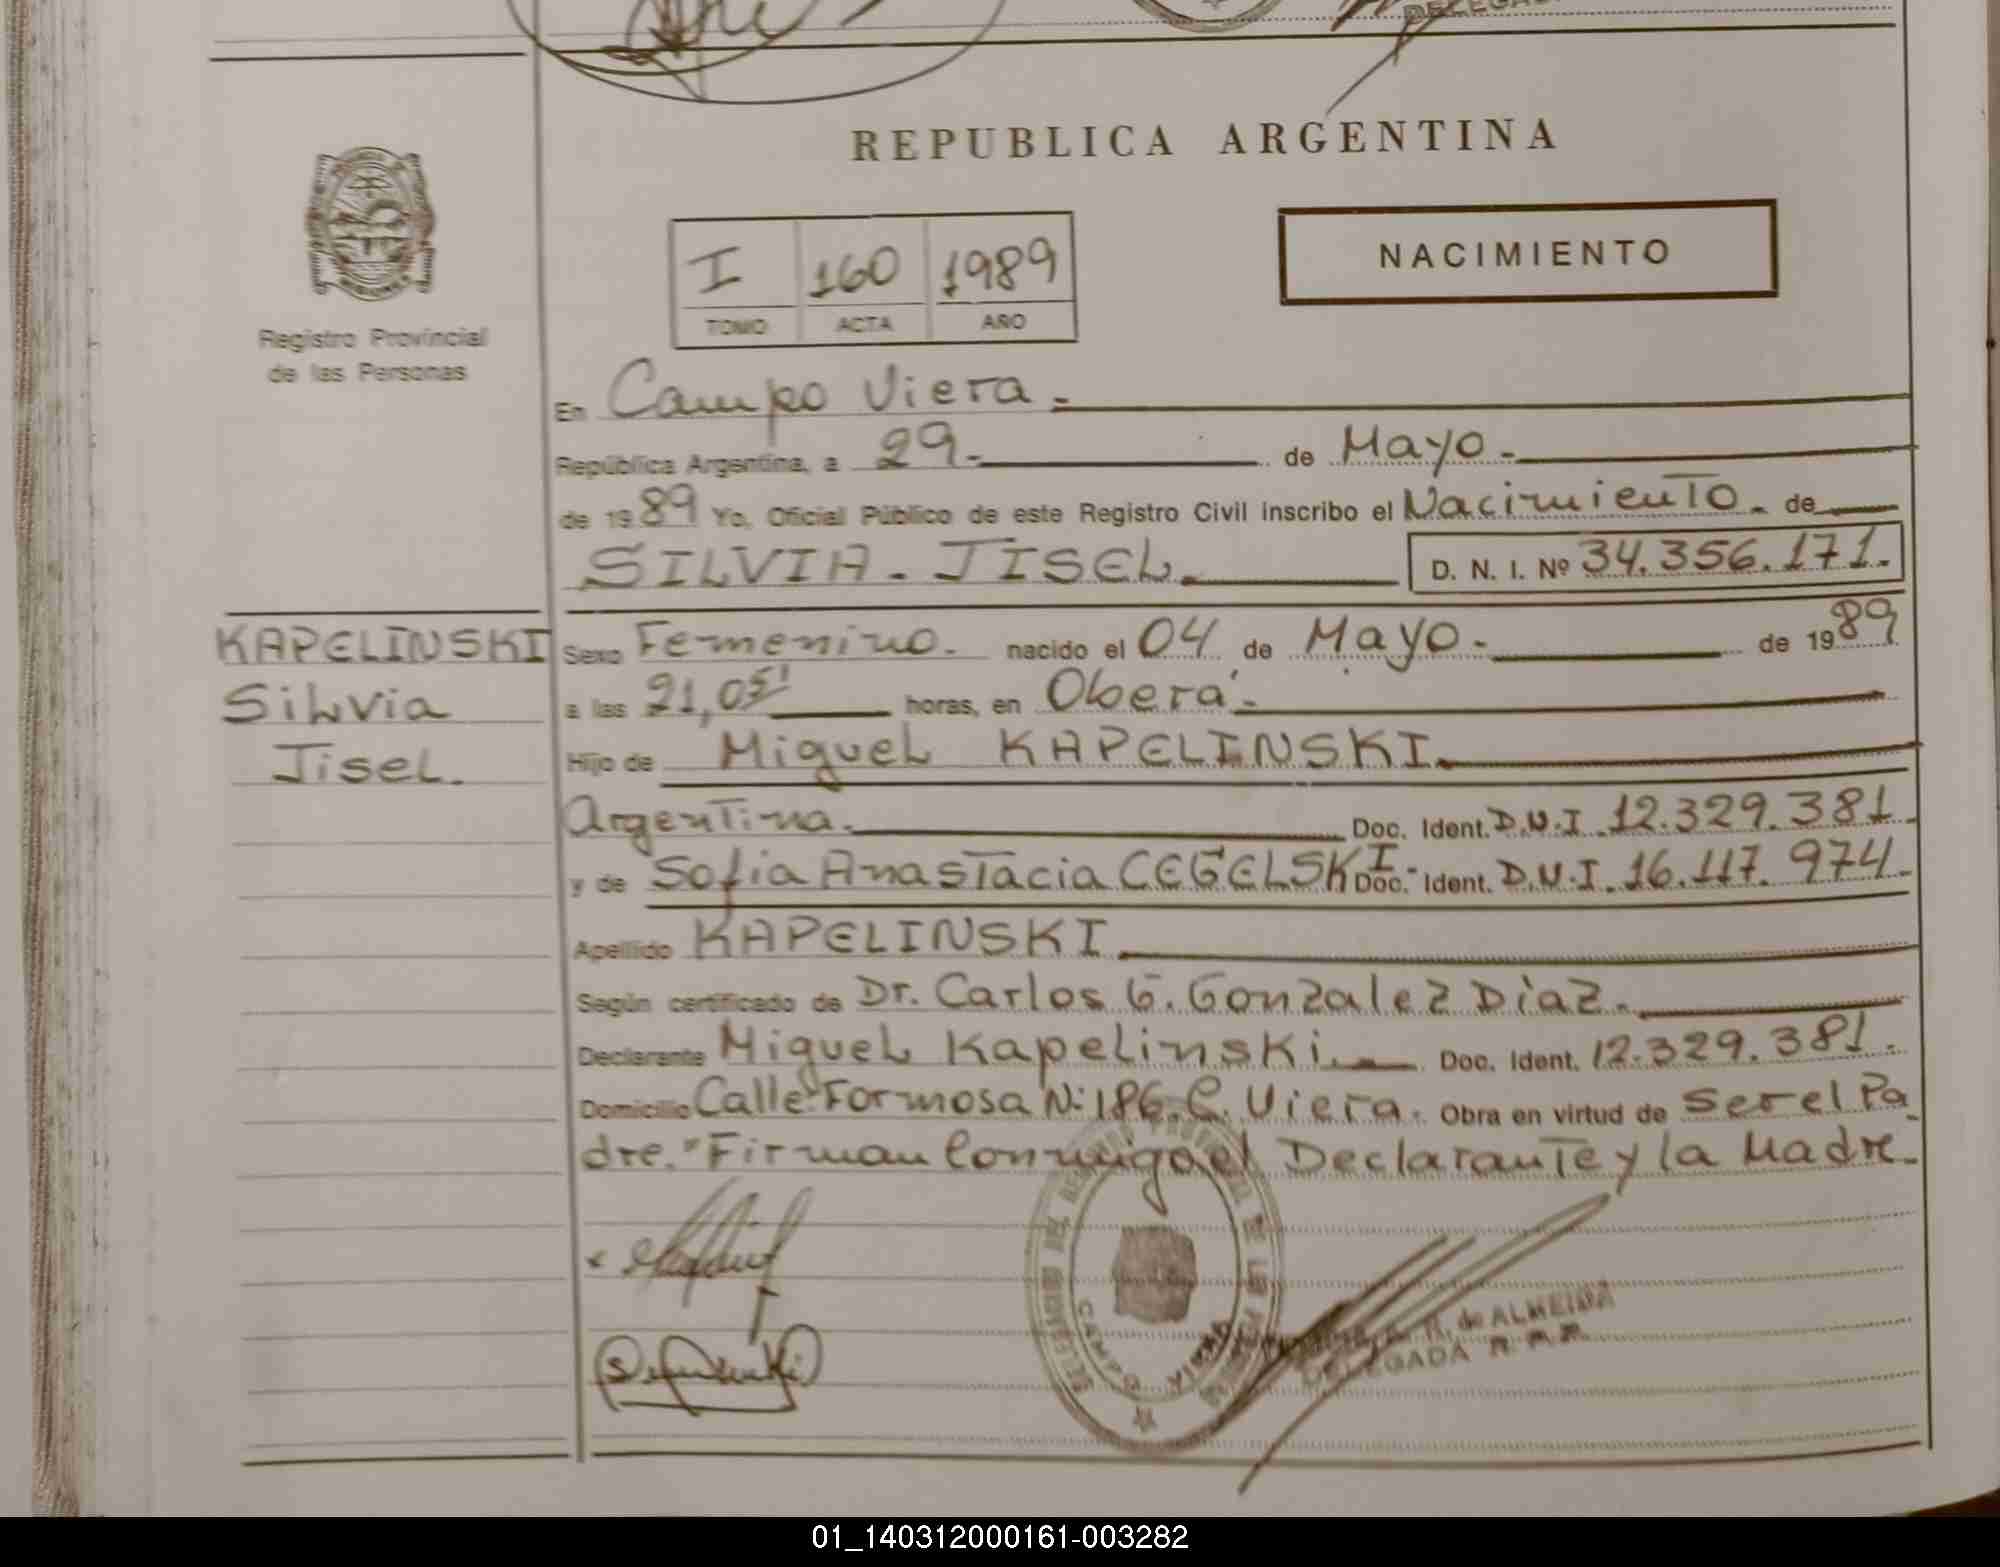 DELEGADA
REPUBLICA ARGENTINA
I 160 1989
TOMO ACTA AÑO
NACIMIENTO
Registro Provincial
de las Personas
En Campo Viera.-
República Argentina, a 29.- de Mayo.-
de 1989 Yo, Oficial Público de este Registro Civil inscribo el Nacimiento. de
SILVIA. JISEL. D. N. I. Nº 34.356.171.
KAPELINSKI
Silvia
Jisel.
Sexo Femenino. nacido el 04 de Mayo.- de 1989
a las 21,05' horas, en Oberá.-
Hijo de Miguel KAPELINSKI.
Argentina. Doc. Ident. D.N.I. 12.329.381.
y de Sofia Anastacia CEGELSKI.- Doc. Ident. D.N.I. 16.117.974.
Apellido KAPELINSKI
Según certificado de Dr. Carlos G. Gonzalez Diaz.
Declarante Miguel Kapelinski. Doc. Ident. 12.329.381.
Domicilio Calle Formosa Nº 186. C. Viera. Obra en virtud de ser el Pa
dre. "Firman Conmigo el Declarante y la Madre.
CAMPO VIERA
de ALMEIDA
DELEGADA R. P. P.
01_140312000161-003282